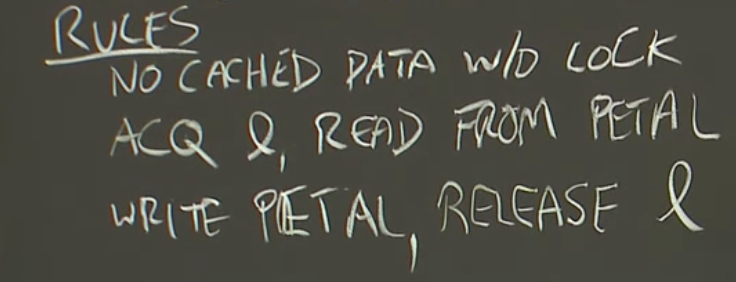 RULES
NO CACHED DATA W/O LOCK
ACQ l, READ FROM PETAL
WRITE PETAL, RELEASE l